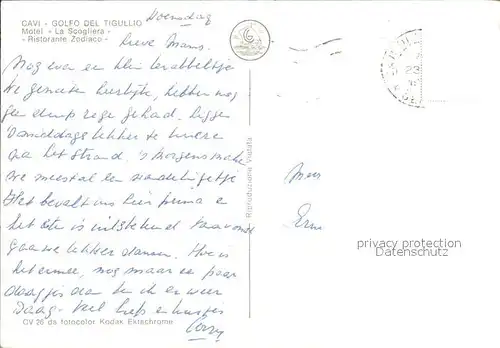 CAVI - GOLFO DEL TIGULLIO
Motel - « La Scogliera »
- « Ristorante Zodiaco » -
Woensdag
Lieve Mams.
Nog even een klein krabbeltje
We genieten heerlijk, hebben nog
geen drup rege gehad. Liggen
's middags lekker te luieren
op het strand. 's Morgens make
we meestal een wandelingetje
Het bevalt ons hier prima e
het eten is uitstekend vanavond
gaan we lekker dansen. Hoe is
het ermee, nog maar een paar
daagjes dan ben ik er weer
Daag - veel liefs en kusjes
CV 26 da fotocolor Kodak Ektachrome
Riproduzione Vietata
Mevr
privacy protection
Datenschutz